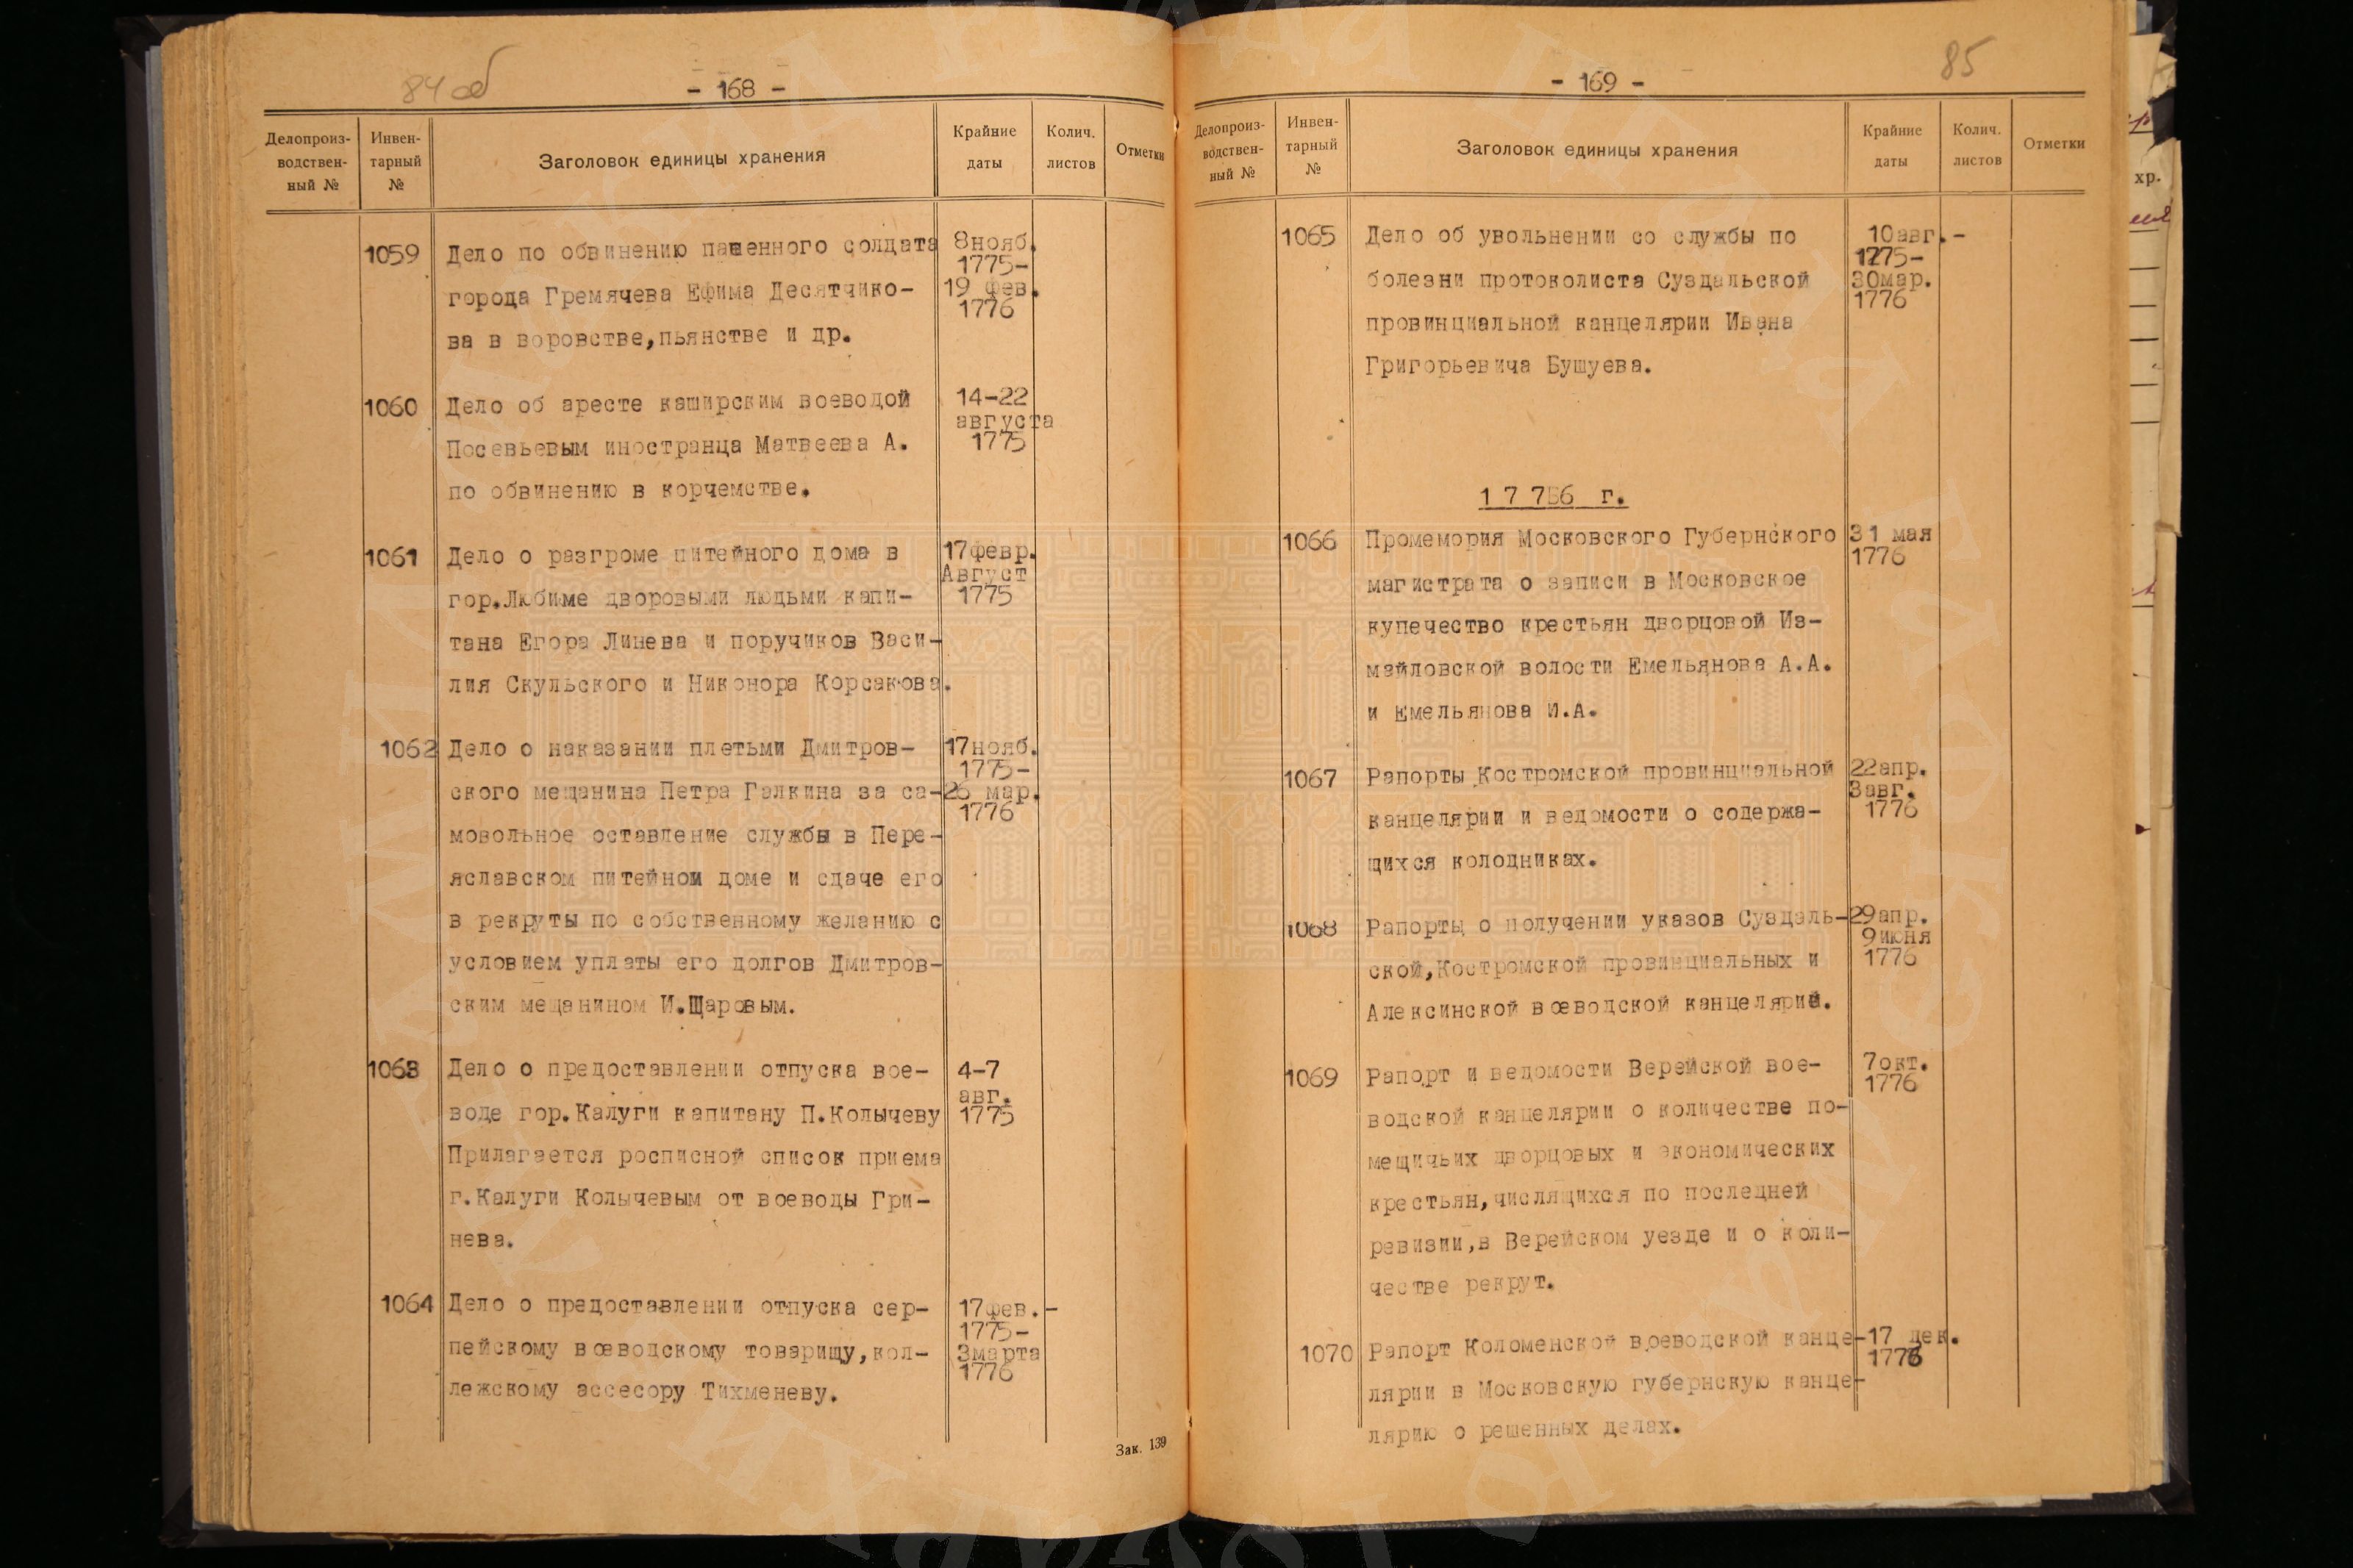 84 об
- 168 -
Делопроиз-
водствен-
ный №
Инвен-
тарный
№
Заголовок единицы хранения
Крайние
даты
Колич.
листов
Отметки
1059
Дело по обвинению пашенного солдата
города Гремячева Ефима Десятчико-
ва в воровстве,пьянстве и др.
8нояб.
1775-
19 фев.
1776
1060
Дело об аресте каширским воеводой
Посевьевым иностранца Матвеева А.
по обвинению в корчемстве.
14-22
августа
1775
1061
Дело о разгроме питейного дома в
гор.Любиме дворовыми людьми капи-
тана Егора Линева и поручиков Васи-
лия Скульского и Никонора Корсакова.
17февр.
Август
1775
1062
Дело о наказании плетьми Дмитров-
ского мещанина Петра Галкина за са-
мовольное оставление службы в Пере-
яславском питейном доме и сдаче его
в рекруты по собственному желанию с
условием уплаты его долгов Дмитров-
ским мещанином И.Щаровым.
17нояб.
1775-
26 мар.
1776
1063
Дело о предоставлении отпуска вое-
воде гор.Калуги капитану П.Колычеву
Прилагается росписной список приема
г.Калуги Колычевым от воеводы Гри-
нева.
4-7
авг.
1775
1064
Дело о предоставлении отпуска сер-
пейскому воеводскому товарищу,кол-
лежскому ассесору Тихменеву.
17фев.-
1775-
3марта
1776
Зак. 139
85
- 169 -
Делопроиз-
водствен-
ный №
Инвен-
тарный
№
Заголовок единицы хранения
Крайние
даты
Колич.
листов
Отметки
1065
Дело об увольнении со службы по
болезни протоколиста Суздальской
провинциальной канцелярии Ивана
Григорьевича Бушуева.
10авг.-
1775-
30мар.
1776
1776 г.
1066
Промемория Московского Губернского
магистрата о записи в Московское
купечество крестьян дворцовой Из-
майловской волости Емельянова А.А.
и Емельянова И.А.
31 мая
1776
1067
Рапорты Костромской провинциальной
канцелярии и ведомости о содержа-
щихся колодниках.
22апр.
3авг.
1776
1068
Рапорты о получении указов Суздаль-
ской,Костромской провинциальных и
Алексинской воеводской канцелярий.
29апр.
9июня
1776
1069
Рапорт и ведомости Верейской вое-
водской канцелярии о количестве по-
мещичьих дворцовых и экономических
крестьян,числящихся по последней
ревизии,в Верейском уезде и о коли-
честве рекрут.
7окт.
1776
1070
Рапорт Коломенской воеводской канце-
лярии в Московскую губернскую канце-
лярию о решенных делах.
17 дек.
1776
хр.